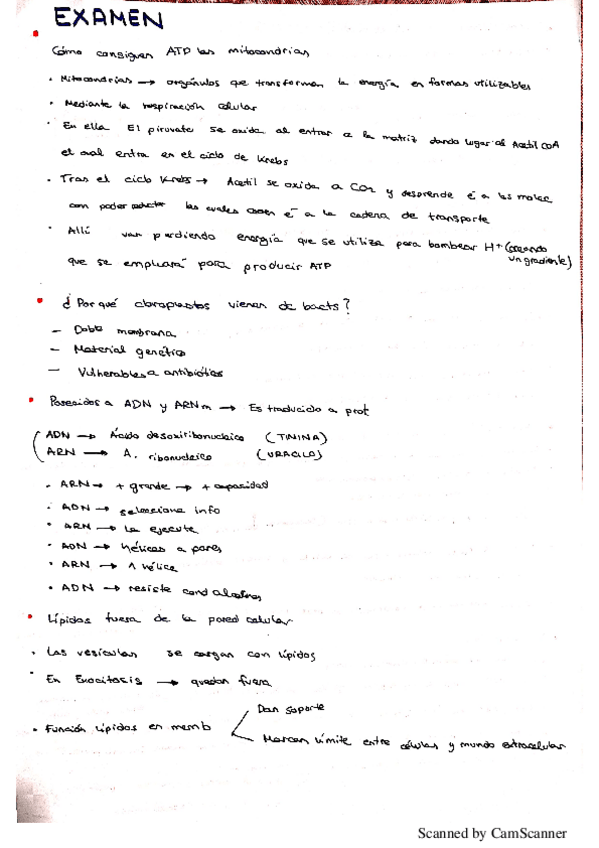 EXAMEN
Cómo consiguen ATP las mitocondrias
· Mitocondrias → orgánulos que transforman la energía en formas utilizables
· Mediante la respiración celular
· En ella El piruvato se oxida al entrar a la matriz dando lugar al Acetil COA
el cual entra en el ciclo de Krebs
· Tras el ciclo Krebs → Acetil se oxida a CO2 y desprende e- a las molec
con poder reductor las cuales ceden e- a la cadena de transporte
· Allí van perdiendo energía que se utiliza para bombear H+ (creando
un gradiente)
que se empleará para producir ATP
¿Por qué cloroplastos vienen de bacts?
- Doble membrana
- Material genético
- Vulnerables a antibióticos
Parecidos a ADN y ARNm → Es traducido a prot
ADN → Ácido desoxirribonucleico (TININA)
ARN → A. ribonucleico (URACILO)
· ARN → + grande → + capacidad
· ADN → selecciona info
· ARN → la ejecute
· ADN → hélices a pares
· ARN → 1 hélice
· ADN → resiste cond alcalinas
Lípidos fuera de la pared celular
· Las vesículas se cargan con lípidos
· En Exocitosis → quedan fuera
Dan soporte
· Función lípidos en memb
Marcan límite entre células y mundo extracelular
Scanned by CamScanner